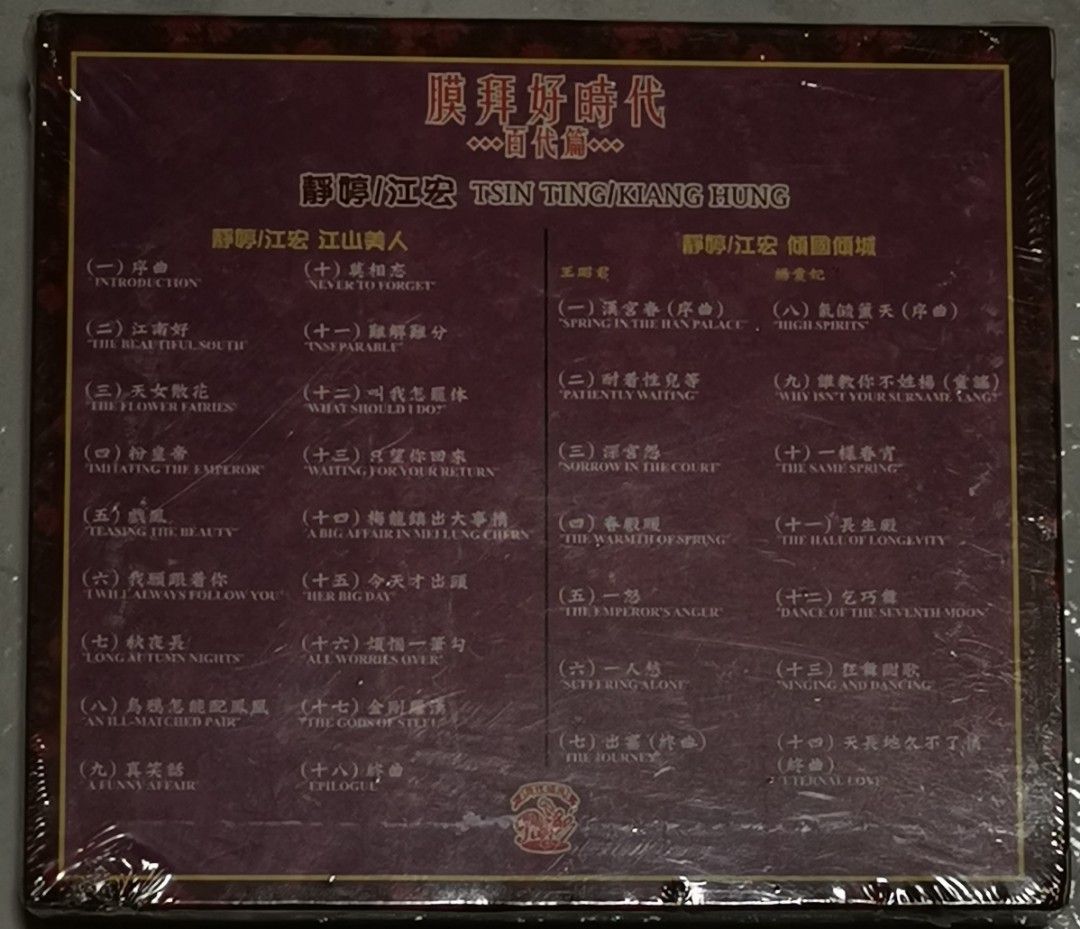 膜拜好時代
百代篇
靜婷/江宏 TSIN TING/KIANG HUNG
靜婷/江宏 江山美人
(一) 序曲
"INTRODUCTION"
(二) 江南好
"THE BEAUTIFUL SOUTH"
(三) 天女散花
"THE FLOWER FAIRIES"
(四) 扮皇帝
"IMITATING THE EMPEROR"
(五) 戲鳳
"TEASING THE BEAUTY"
(六) 我願跟着你
"I WILL ALWAYS FOLLOW YOU"
(七) 秋夜長
"LONG AUTUMN NIGHTS"
(八) 烏鴉怎能配鳳凰
"AN ILL-MATCHED PAIR"
(九) 真笑話
"A FUNNY AFFAIR"
(十) 莫相忘
"NEVER TO FORGET"
(十一) 難解難分
"INSEPARABLE"
(十二) 叫我怎罷休
"WHAT SHOULD I DO?"
(十三) 只望你回來
"WAITING FOR YOUR RETURN"
(十四) 梅龍鎮出大事情
"A BIG AFFAIR IN MEI LUNG CHERN"
(十五) 今天才出頭
"HER BIG DAY"
(十六) 煩惱一筆勾
"ALL WORRIES OVER"
(十七) 金剛羅漢
"THE GODS OF STEEL"
(十八) 終曲
"EPILOGUE"
靜婷/江宏 傾國傾城
王昭君
(一) 漢宮春 (序曲)
"SPRING IN THE HAN PALACE"
(二) 耐着性兒等
"PATIENTLY WAITING"
(三) 深宮怨
"SORROW IN THE COURT"
(四) 春殿暖
"THE WARMTH OF SPRING"
(五) 一怒
"THE EMPEROR'S ANGER"
(六) 一人愁
"SUFFERING ALONE"
(七) 出塞 (終曲)
"THE JOURNEY"
楊貴妃
(八) 氣傾薰天 (序曲)
"HIGH SPIRITS"
(九) 誰教你不姓楊 (童謠)
"WHY ISN'T YOUR SURNAME YANG?"
(十) 一樣春宵
"THE SAME SPRING"
(十一) 長生殿
"THE HALL OF LONGEVITY"
(十二) 乞巧舞
"DANCE OF THE SEVENTH MOON"
(十三) 狂舞酣歌
"SINGING AND DANCING"
(十四) 天長地久不了情
(終曲)
"ETERNAL LOVE"